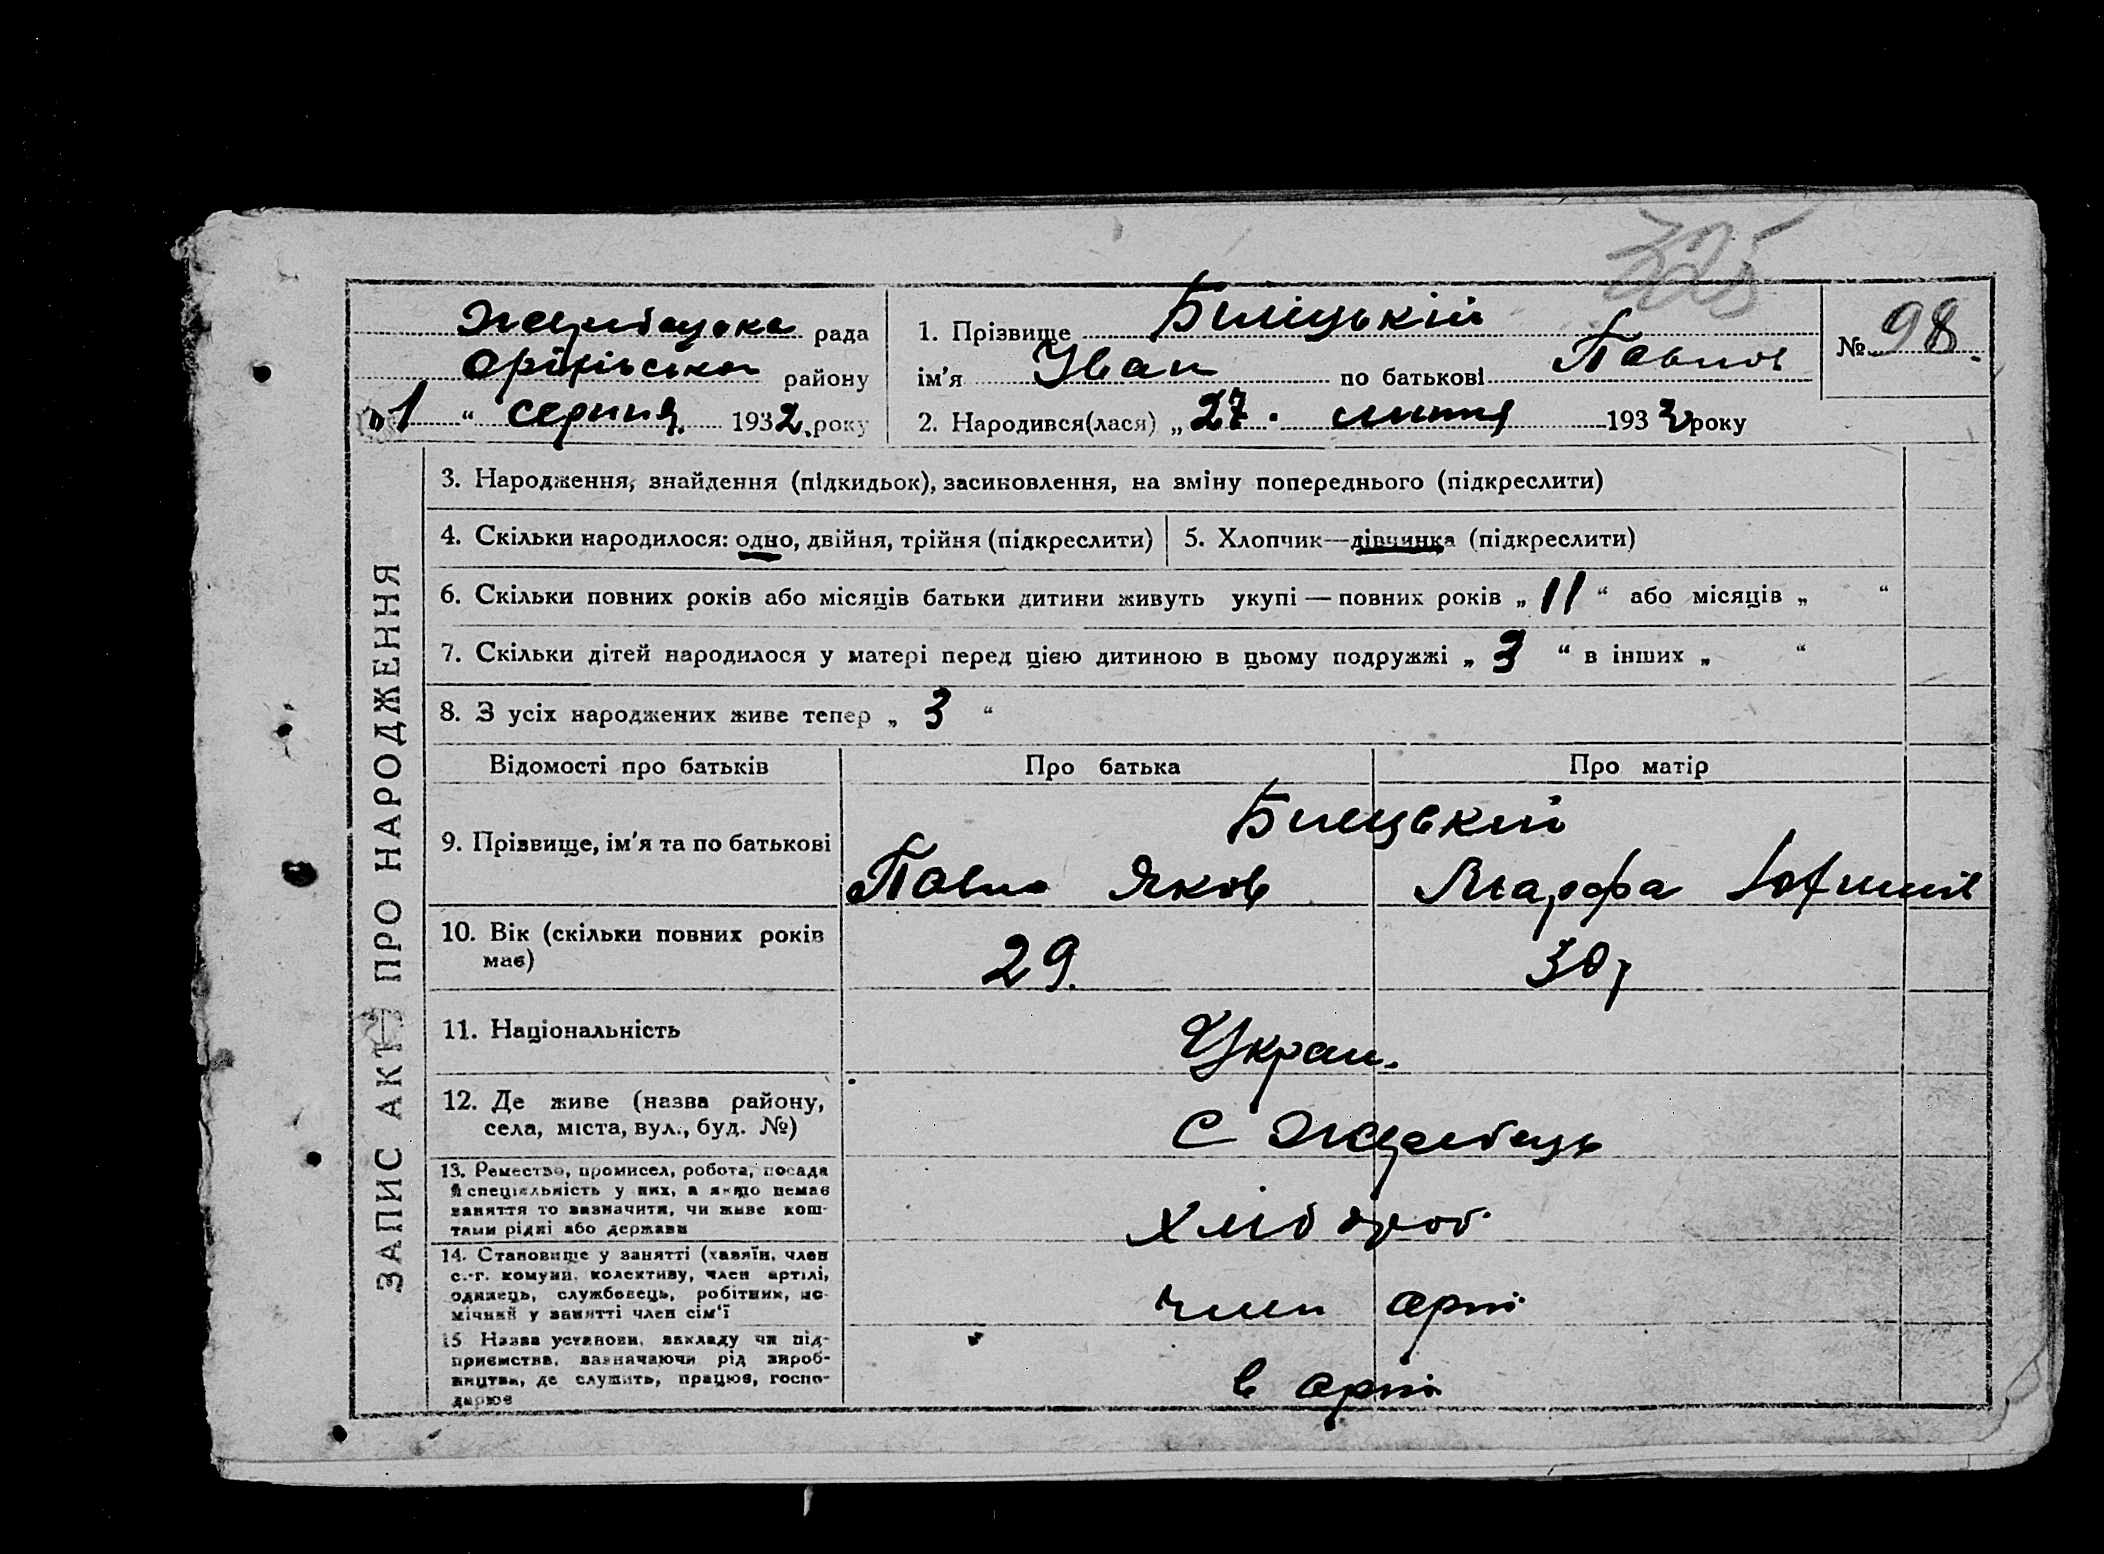 325
Жеребецька рада
Оріхівська району
„1“ серпня 1932 року
1. Прізвище Биліцькій
ім'я Іван по батькові Павлов
№ 98
2. Народився(лася) „27. липня 1932 року
ЗАПИС АКТ ПРО НАРОДЖЕННЯ
3. Народження, знайдення (підкидьок), засиновлення, на зміну попереднього (підкреслити)
4. Скільки народилося: одно, двійня, трійня (підкреслити)
5. Хлопчик—дівчинка (підкреслити)
6. Скільки повних років або місяців батьки дитини живуть укупі — повних років „11“ або місяців „ “
7. Скільки дітей народилося у матері перед цією дитиною в цьому подружжі „3“ в інших „ “
8. З усіх народжених живе тепер „3“
Відомості про батьків
Про батька
Про матір
9. Прізвище, ім'я та по батькові
Билецький
Павло Яков
Марфа Юхимів
10. Вік (скільки повних років
має)
29.
30
11. Національність
Украи.
12. Де живе (назва району,
села, міста, вул., буд. №)
С Жеребець
13. Ремество, промисел, робота, посада
й спеціяльність у них, а якщо немає
заняття то зазначити, чи живе кош-
тами рідні або держави
Хлібороб
14. Становище у занятті (хазяїн, член
с.-г. комуни, колективу, член артілі,
одинець, службовець, робітник, по-
мічний у занятті член сім'ї
член арті
15 Назва установи, закладу чи під-
приємства, зазначаючи рід вироб-
ництва, де служить, працює, госпо-
дарює
в арті